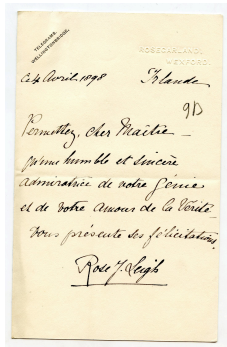 TELEGRAMS,
WELLINGTONBRIDGE.
ROSEGARLAND,
WEXFORD.
ce 4 Avril. 1898 Irlande
9D
Permettez, cher Maître —
qu'une humble et sincère
admiratrice de votre Génie
et de votre amour de la Vérité
vous présente ses félicitations.
Rose J. Leigh